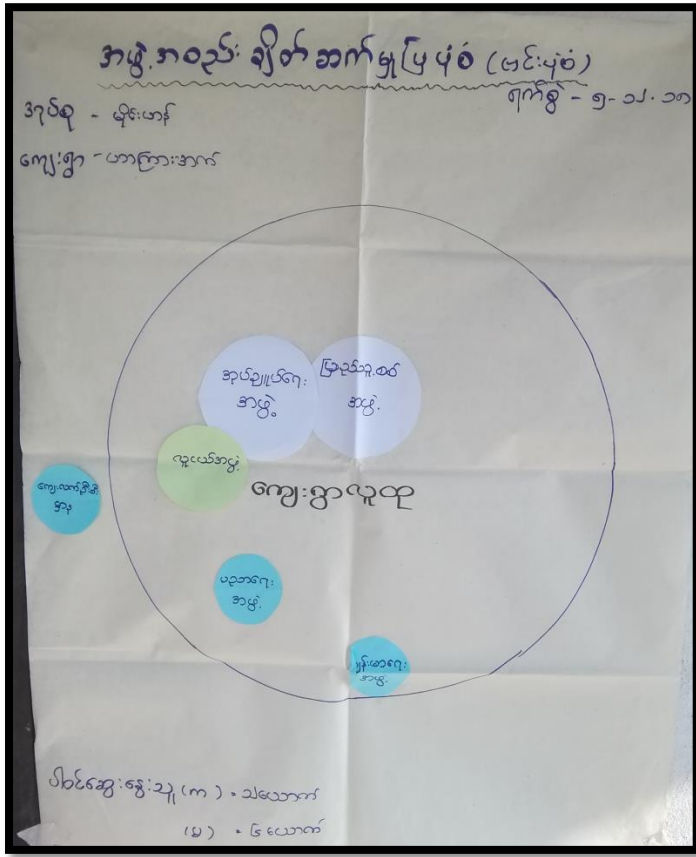 အဖွဲ့အစည်း ချိတ်ဆက်မှုပြ ပုံစံ (ဗင်းပုံစံ)
ရက်စွဲ - ၅-၁၂-၁၈
အုပ်စု - မိုင်းဟန်
ကျေးရွာ - ဟကြားအက်
အုပ်ချုပ်ရေး
အဖွဲ့
ပြည်သူ့စစ်
အဖွဲ့
လူငယ်အဖွဲ့
ကျေးရွာလူထု
ပညာရေး
အဖွဲ့
ကျန်းမာရေး
အဖွဲ့
ပါဝင်ဆွေးနွေးသူ (ကျား) = ယောက်
(မ) = ၆ ယောက်